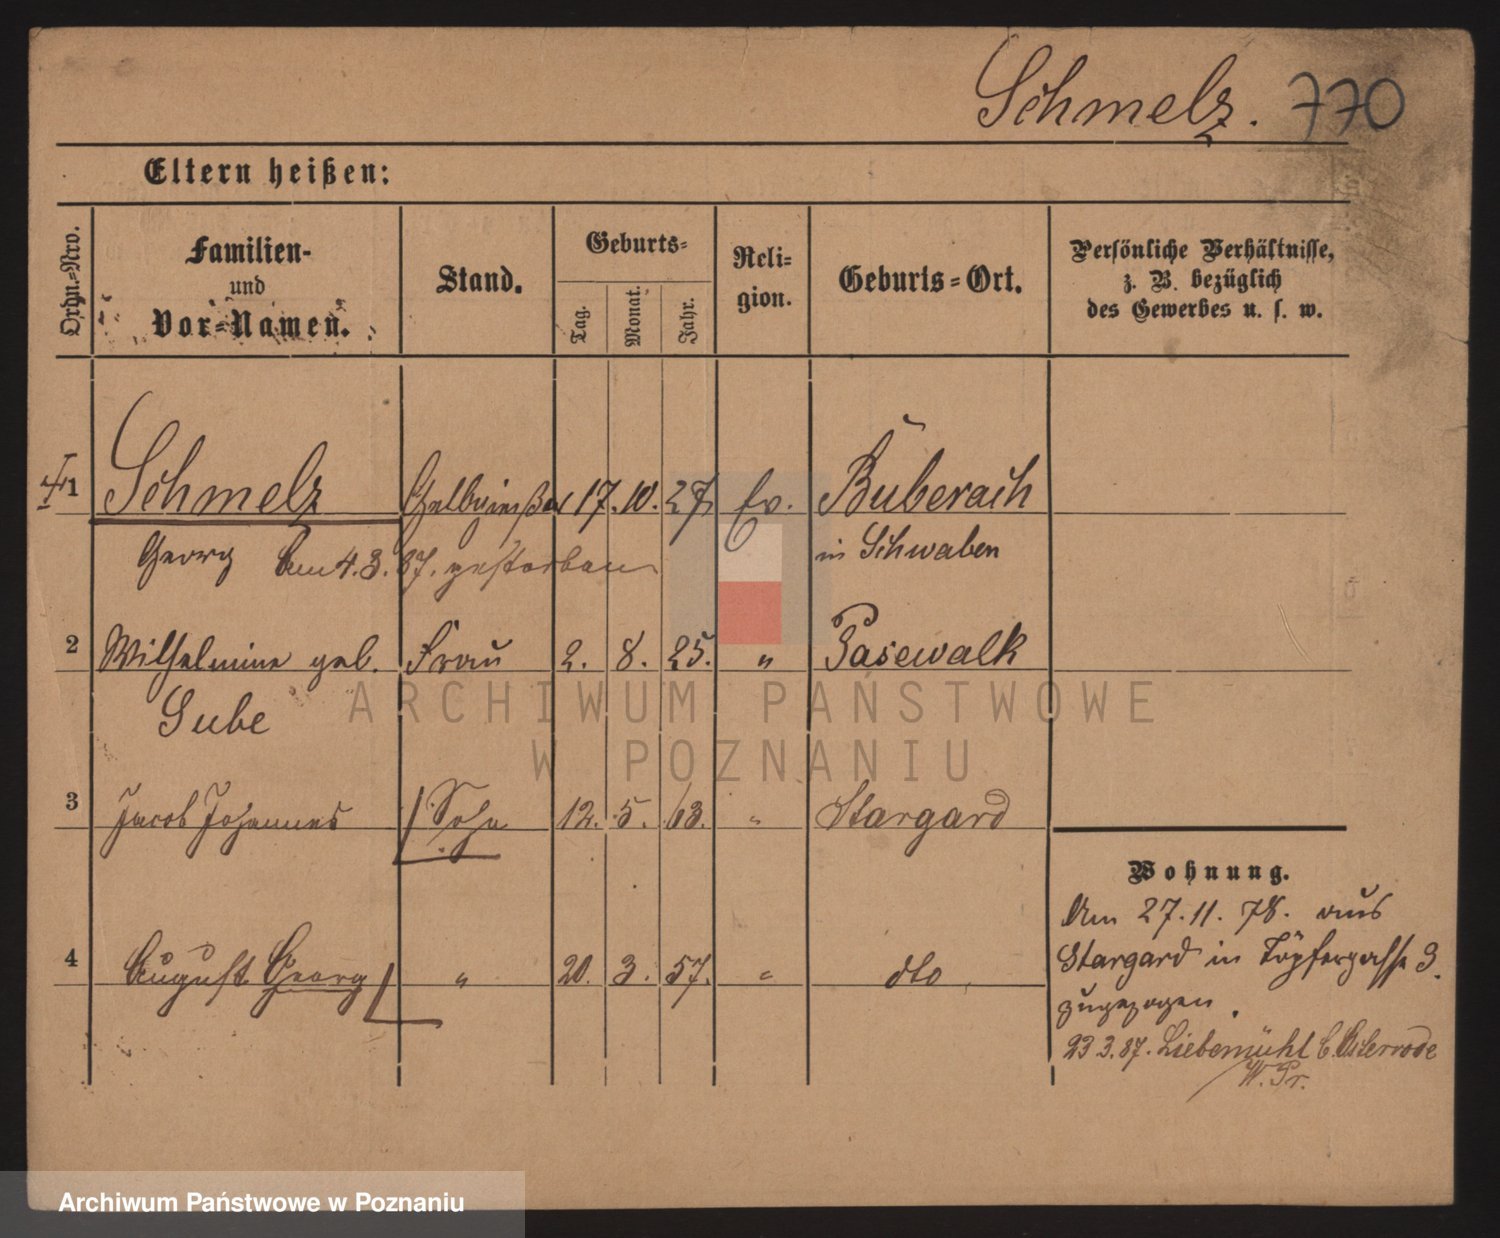 Schmelz. 770
Eltern heißen:
Ordn.-Nro.
Familien-
und
Vor-Namen.
Stand.
Geburts-
Tag.
Monat.
Jahr.
Reli-
gion.
Geburts-Ort.
Persönliche Verhältnisse,
z. B. bezüglich
des Gewerbes u. s. w.
1 Schmelz Gelbgießer 17. 10. 27 Ev. Büberach
Georg Am 4. 3. 87. gestorben in Schwaben
2 Wilhelmine geb. Frau 2. 8. 25. " Pasewalk
Gube
3 Jacob Johannes Sohn 12. 5. 63. " Stargard
4 August Georg " 20. 3. 57. " dto
Wohnung.
Am 27. 11. 78. aus
Stargard in Töpfergasse 3.
zugezogen.
23 3. 87. Liebemühl b. Osterrode
W. Pr.
ARCHIWUM PAŃSTWOWE
W POZNANIU
Archiwum Państwowe w Poznaniu